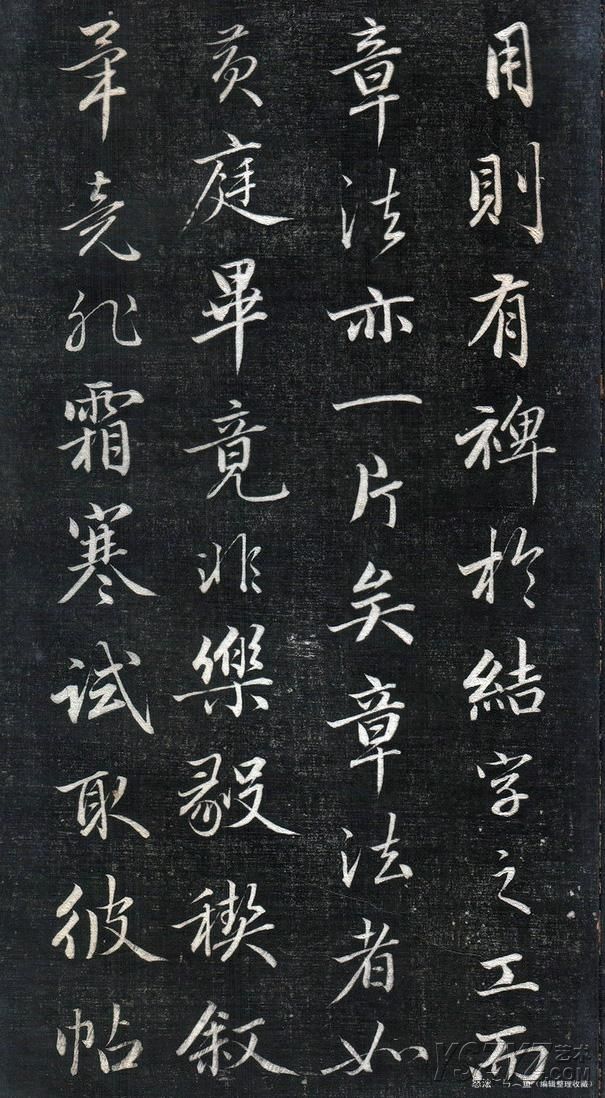 用則有裨於結字之工而
章法亦一片矣章法者如
黃庭畢竟非樂毅禊敘
畢竟非霜寒試取彼帖
艺术
（编辑整理收藏）